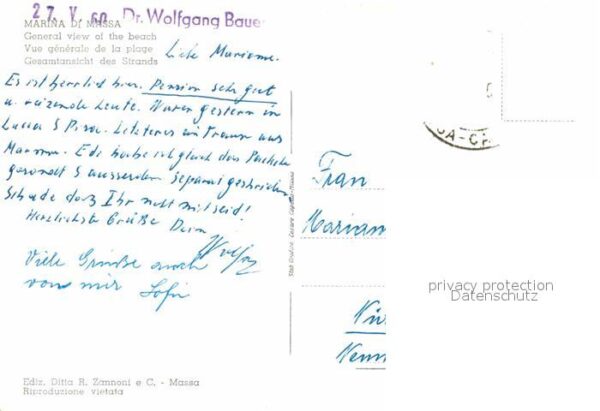 27. V. 60 Dr. Wolfgang Bauer
MARINA DI MASSA
General view of the beach
Vue générale de la plage
Gesamtansicht des Strands
Liebe Marianne.
Es ist herrlich hier. Pension sehr gut
u. reizende Leute. Waren gestern in
Lucca & Pisa. Letzteres ein Traum aus
Marmor. habe ich gleich das
& ausserdem separat geschrieben
Schade daß Ihr nicht mit seid!
Herzlichste Grüße Dein
Wolfgang
Viele Grüsse auch
von mir Sofie
Frau
Mariann
privacy protection
Datenschutz
Ediz. Ditta R. Zannoni e C. - Massa
Riproduzione vietata